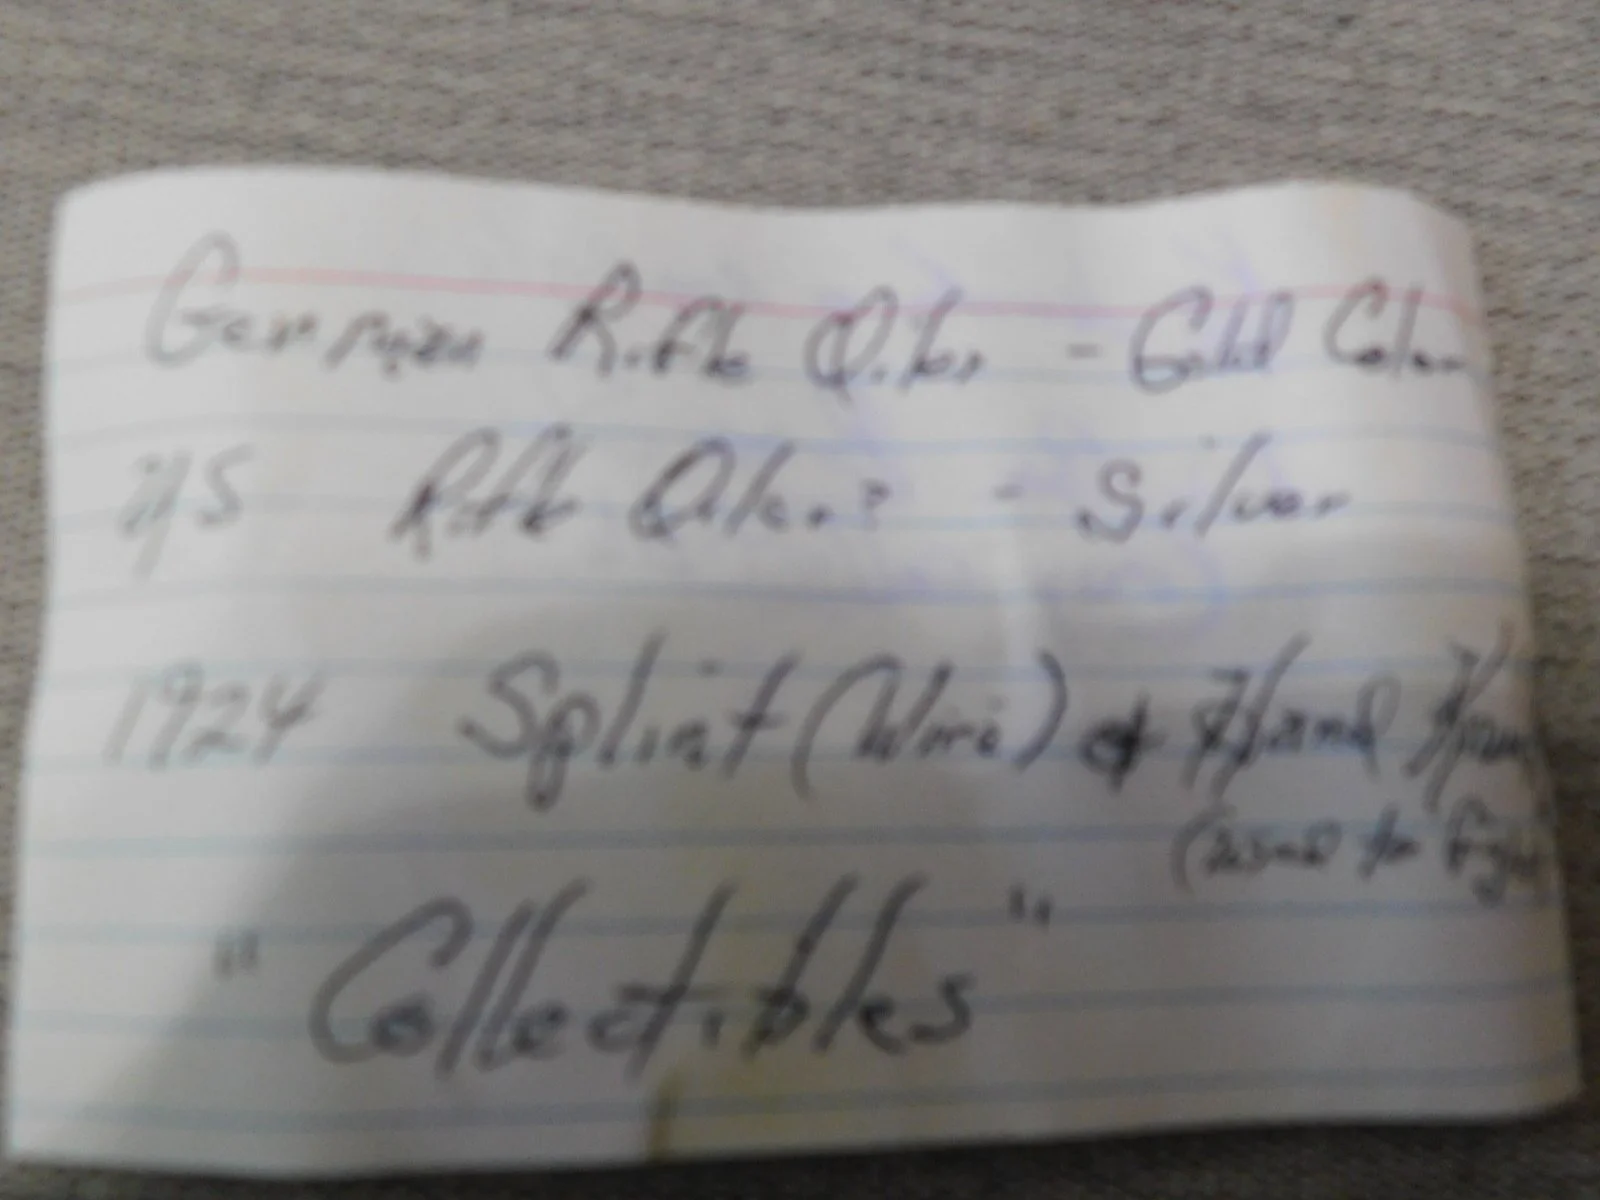 German Rifle Oiler - Gold Color
Rifle Oiler? - Silver
1924 Splint (Wire) & Hand
(used to
"Collectibles"